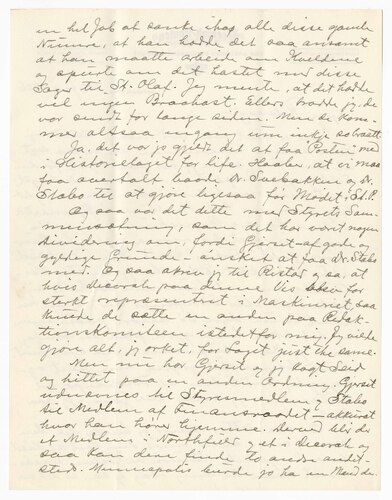 en hel Job at sanke ihop alle disse gamle
Numre, at han hadde det saa ansamt
at han maatte arbeide om Kveldene
og spurte om det hastet med disse
Sager til St. Olaf. Jeg mente, at det hadde
vel ingen Braahast. Ellers trodde jeg, de
var sendt for lenge siden. Men de kom-
mer altsaa ingang um inkje so bratt.
Ja, det var jo gjildt det at faa Preus med
i Historielaget for life. Haaber, at vi maa
faa overtalt baade Dr. Saebakken og Dr.
Stabo til at gjøre ligesaa før Mødet i St. P.
Og saa var det dette med Styrets Sam-
mensætning, som det har voret nogen
Dividering om, fordi Gjerset af gode og
gyldige Grunde ønsket at faa Dr. Stabo
med. Og saa skrev jeg til Ristad og sa, at
hvis Decorah paa denne Vis blev for
sterkt representert i Maskineriet, saa
kunde de sætte en anden paa Redak-
tionskomiteen istedetfor mig. Jeg vilde
gjøre alt, jeg orket, for Laget just the same.
Men nu har Gjerset og jeg lagt Leid
og hittet paa en anden Ordning. Gjerset
til Styremedlem og Stabo
til Medlem af Finansraadet — akkurat
hvor han hører hjemme. Derved blir der
et Medlem i Northfield og et i Decorah og
saa kan dere finde to andre andet-
steds. Minneapolis burde jo ha en Mand der.